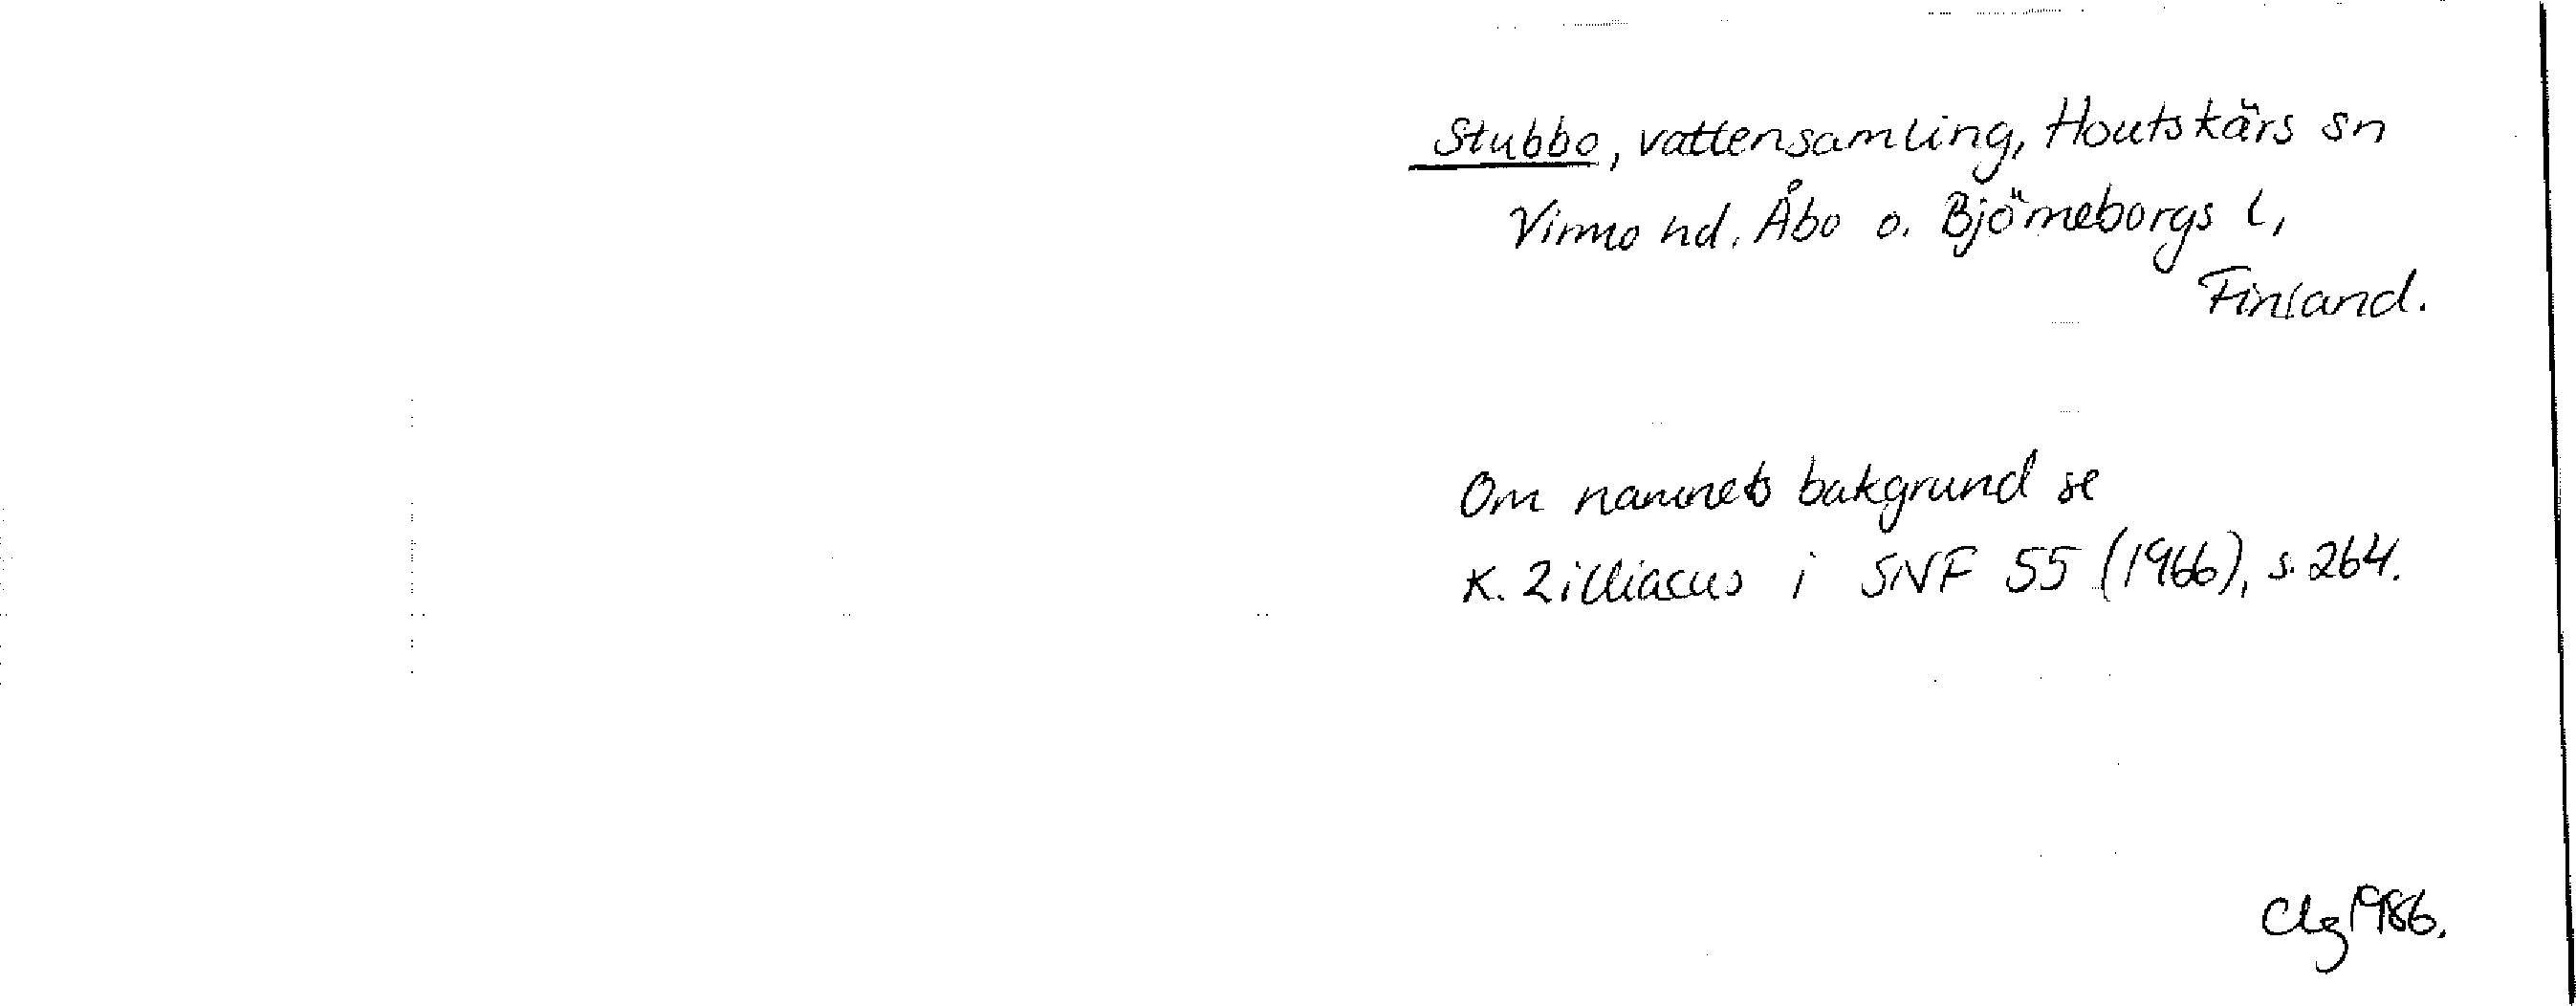 Stubbo, vattensamling, Houtskärs sn
Virmo hd. Åbo o. Björneborgs l,
Finland.
Om namnets bakgrund se
K. Zilliacus i SNF 55 (1966), s. 264.
Clg 1986.